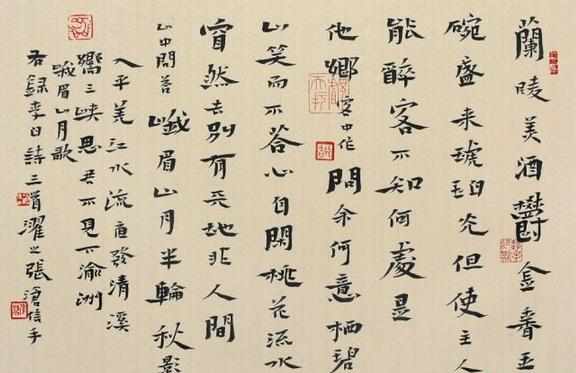 蘭陵美酒鬱金香玉
碗盛來琥珀光但使主人
能醉客不知何處是
他鄉客中作問余何意栖碧
山笑而不答心自閑桃花流水
窅然去別有天地非人間
山中問答峨眉山月半輪秋影
入平羌江水流夜發清溪
嚮三峽思君不見下渝洲
峨眉山月歌
右錄李白詩三首濯之張滄信手